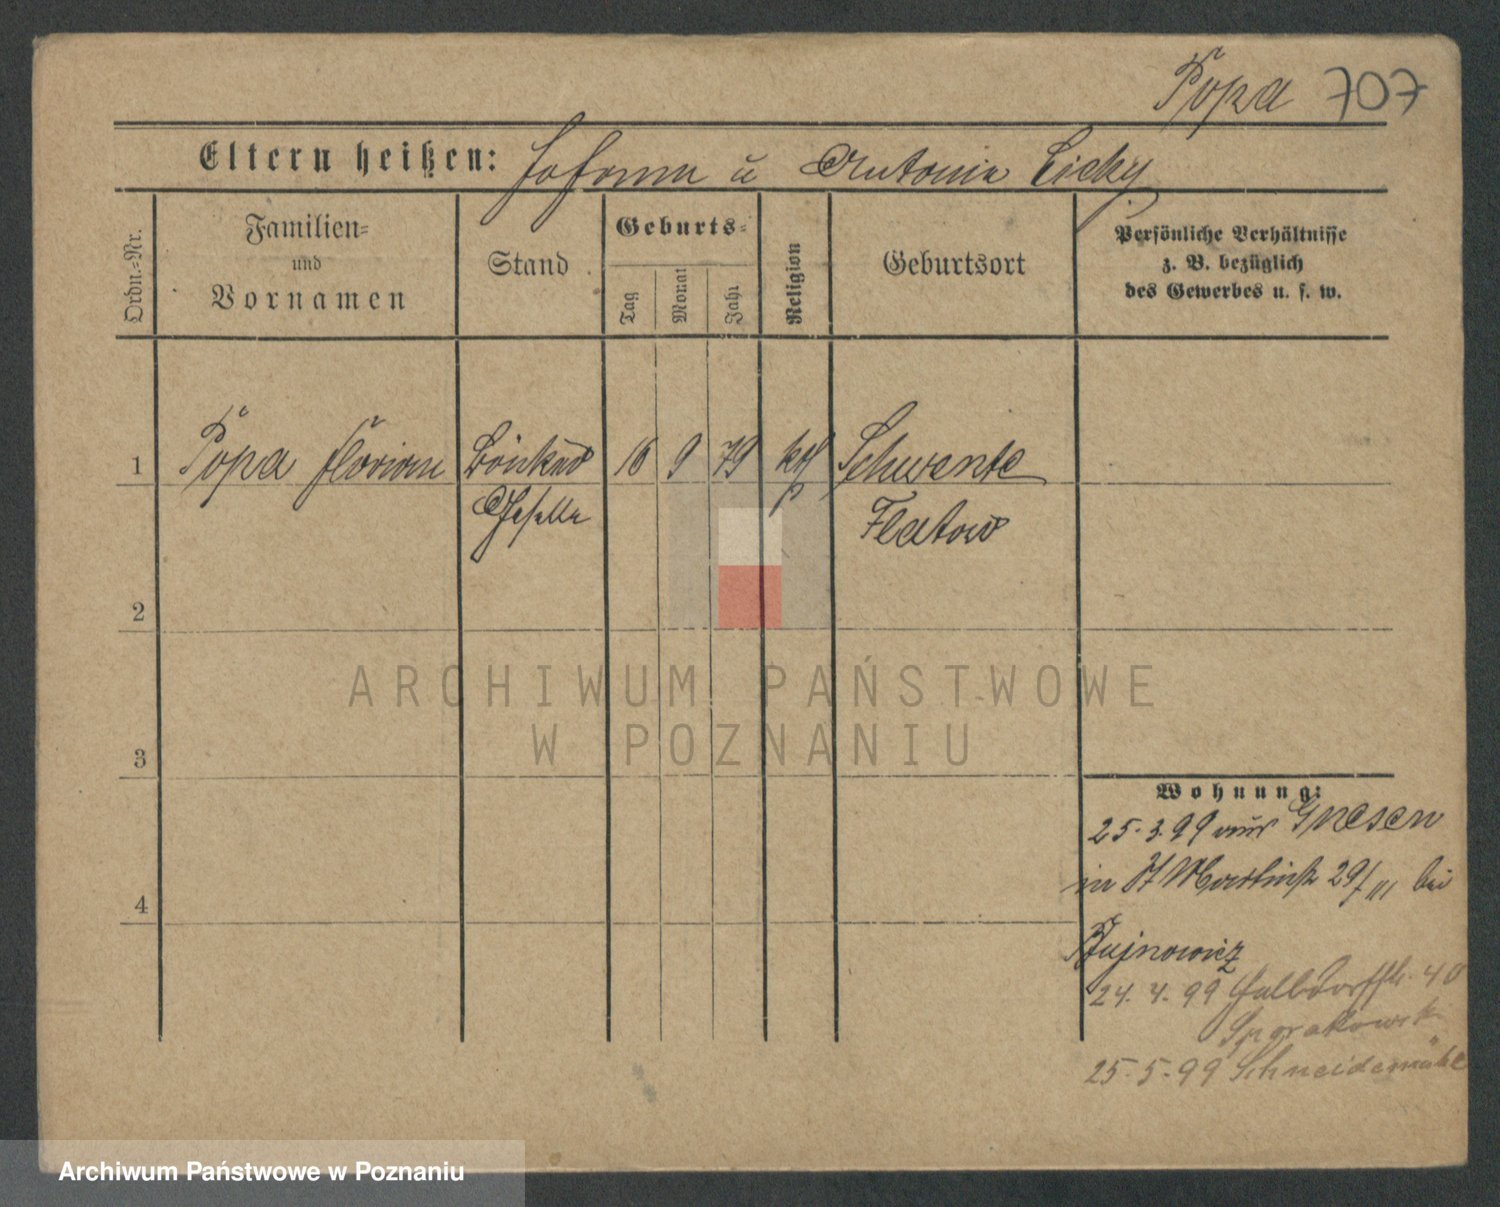 Popa 707
Eltern heißen: Johann u Antonie Cichy
Ordn.-Nr.
Familien-
und
Vornamen
Stand
Geburts-
Tag
Monat
Jahr
Religion
Geburtsort
Persönliche Verhältnisse
z. B. bezüglich
des Gewerbes u. s. w.
1 Popa Florian 16 9 79 kth Schwente
Geselle Flatow
2
ARCHIWUM PAŃSTWOWE
W POZNANIU
3
Wohnung:
25.3.99 aus Gnesen
in St Martinstr 29/III bei
4
Bujnowicz
24.4.99 Halbdorfstr. 40
25-5-99 Schneidemühl
Archiwum Państwowe w Poznaniu